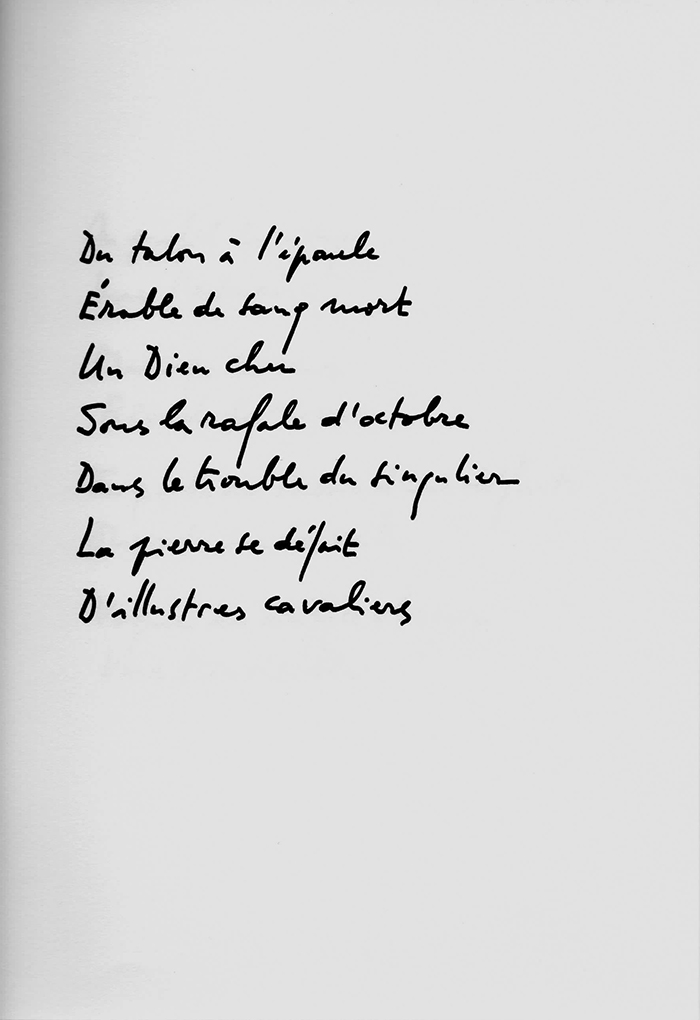 Du talon à l'épaule
Érable de sang mort
Un Dieu chu
Sous la rafale d'octobre
Dans le trouble du singulier
La pierre se défait
D'illustres cavaliers